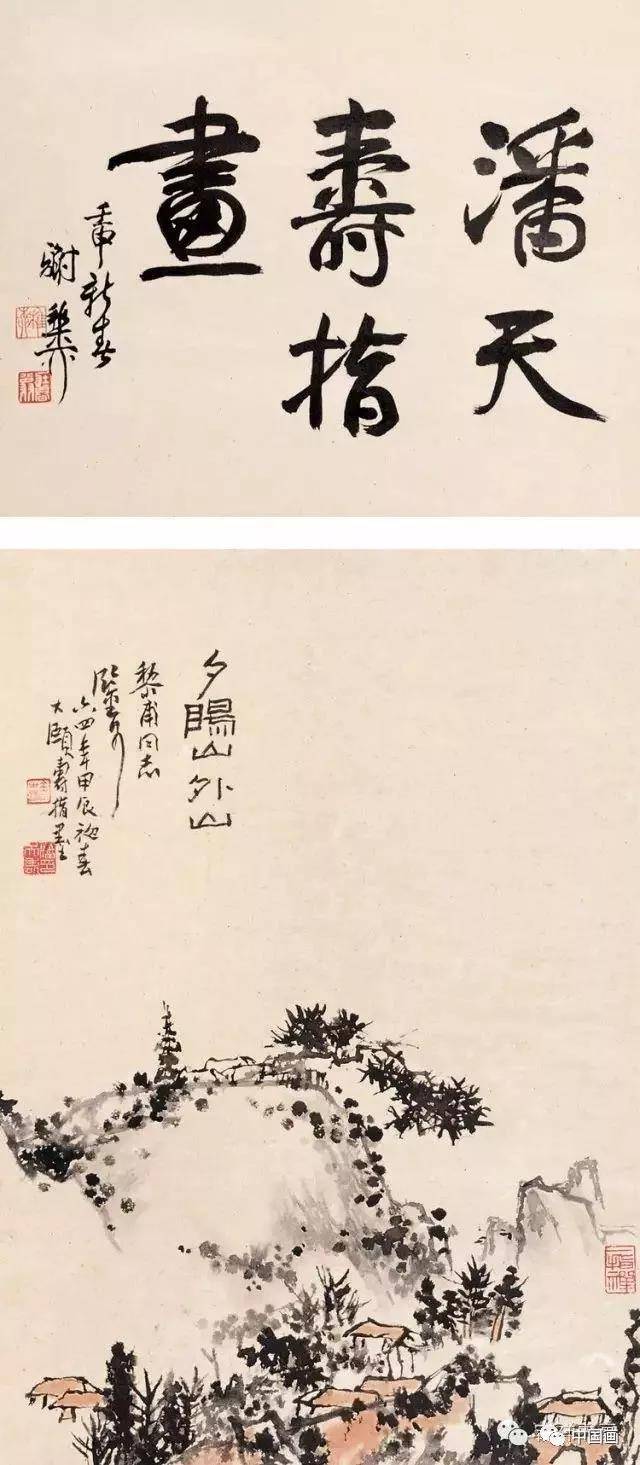 潘天
壽指
畫
壬申新春
謝稚柳
夕陽山外山
黎甫同志
六四年甲辰初春
大頤壽指墨
中国画